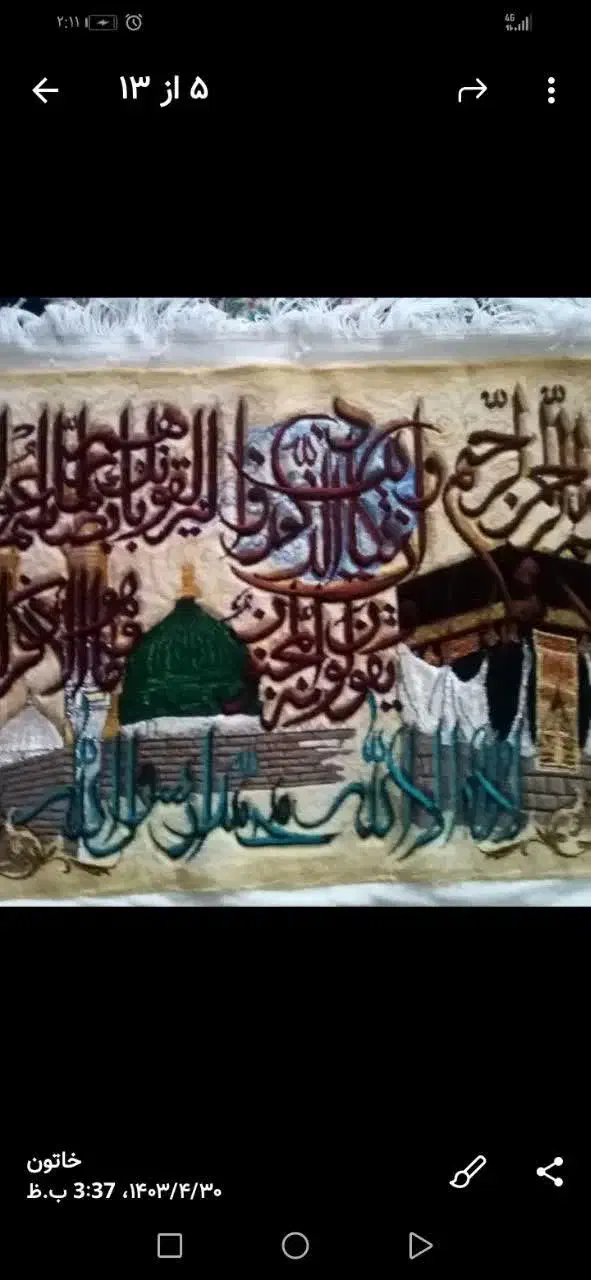 ۲:۱۱ 4G
۵ از ۱۳
الرحمن الرحیم
وان یکاد الذین کفروا لیزلقونک بابصارهم لما
یقولون انه لمجنون وما هو الا
لا اله الا الله محمد رسول الله
خاتون
۱۴۰۳/۴/۳۰، 3:37 ب.ظ